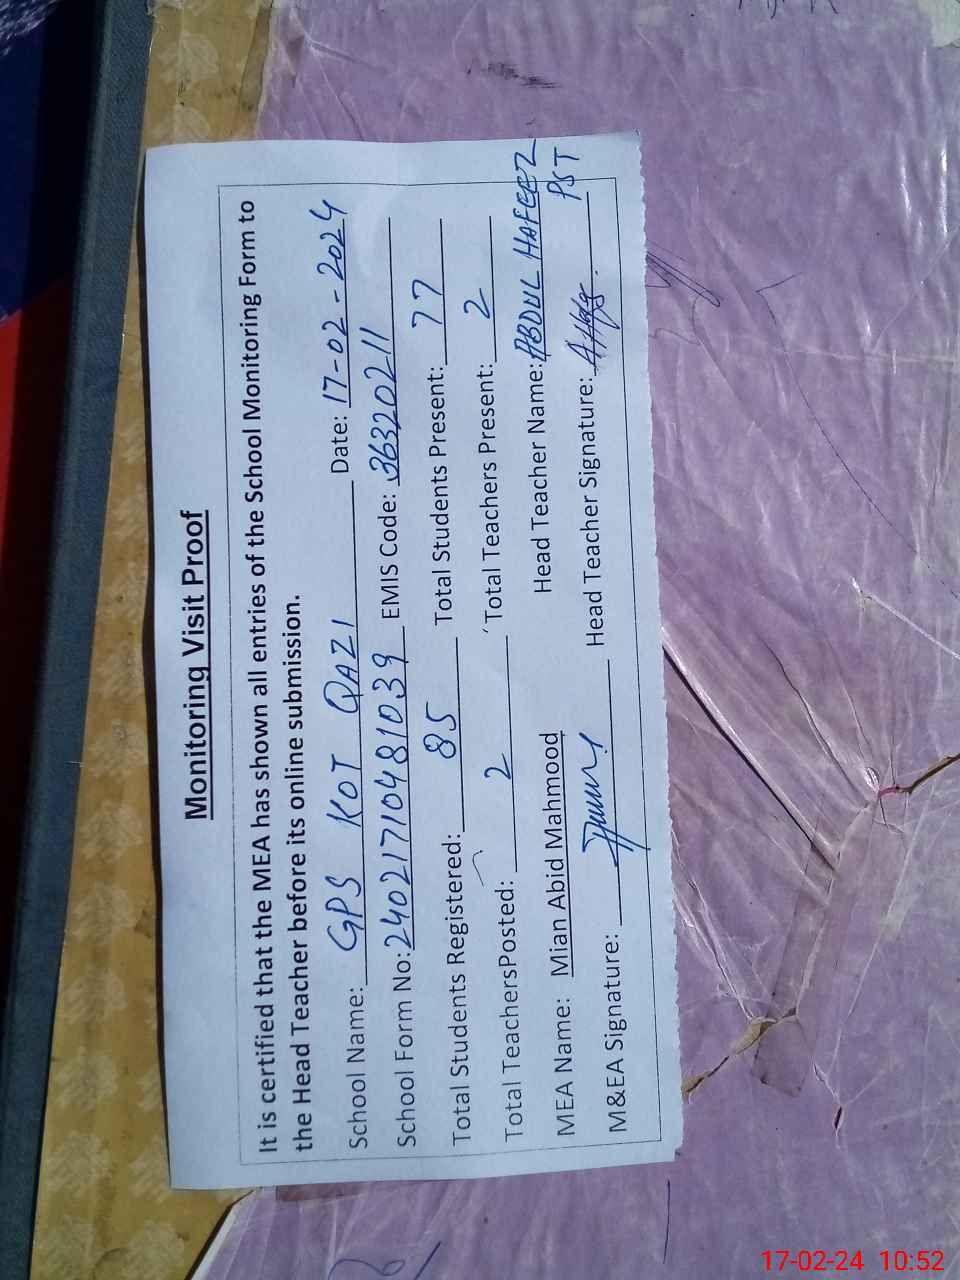 Monitoring Visit Proof
It is certified that the MEA has shown all entries of the School Monitoring Form to
the Head Teacher before its online submission.
School Name: GPS KOT QAZI Date: 17-02-2024
School Form No: 24021710481039 EMIS Code: 36320211
Total Students Registered: 85 Total Students Present: 77
Total TeachersPosted: 2 Total Teachers Present: 2
MEA Name: Mian Abid Mahmood Head Teacher Name: ABDUL HAFEEZ
PST
M&EA Signature: Head Teacher Signature:
17-02-24 10:52